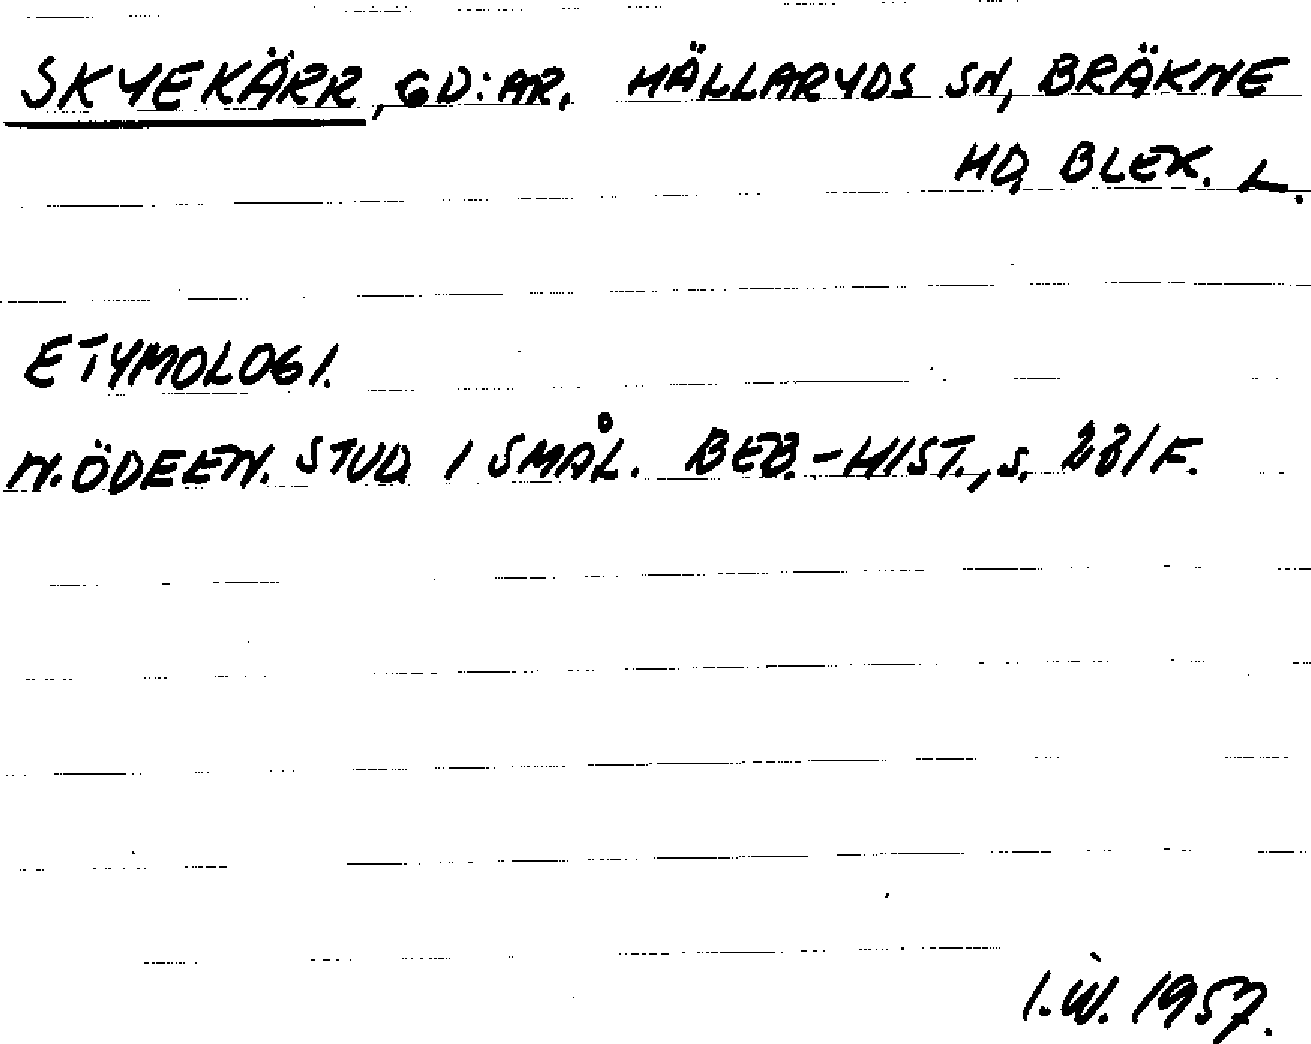 SKYEKÄRR, GD:AR. HÄLLARYDS SN, BRÄKNE
HD, BLEK. L.
ETYMOLOGI.
N. ÖDEEN. STUD. I SMÅL. BEB.-HIST., S. 231 F.
I.W. 1957.